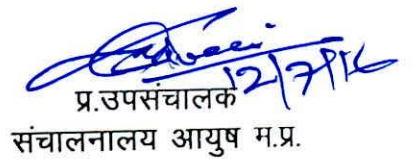 12/7/16
प्र.उपसंचालक
संचालनालय आयुष म.प्र.